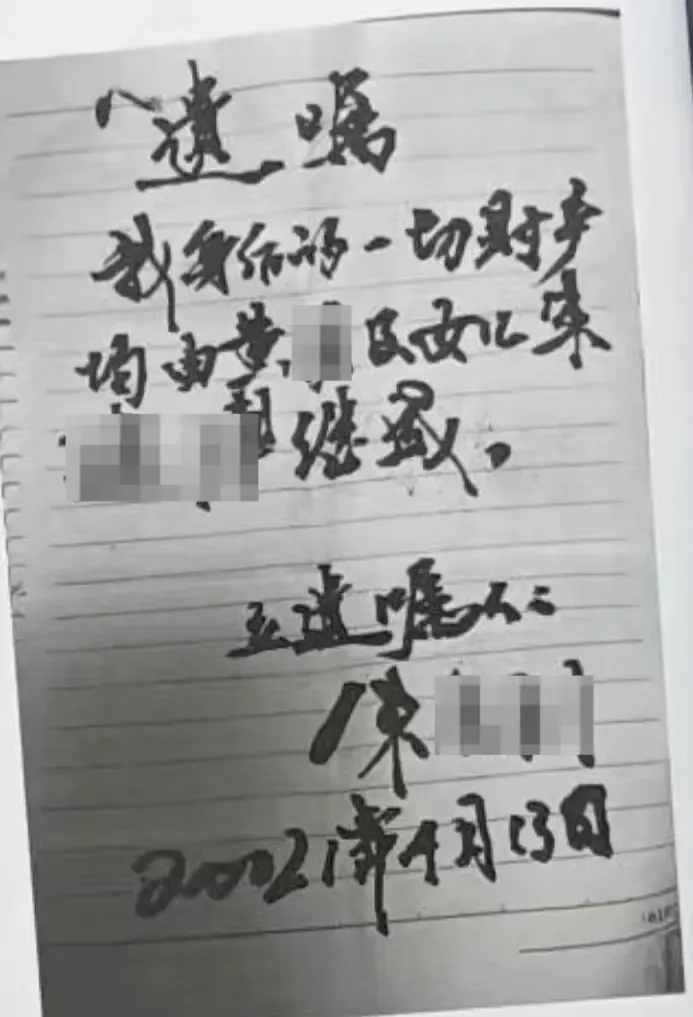 遗嘱
我身后的一切财产
均由黄及女儿朱
继承。
立遗嘱人:
朱
20021年4月13日